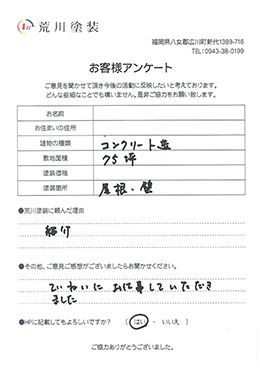 荒川塗装
福岡県八女郡広川町新代1389-716
TEL:0943-38-0199
お客様アンケート
ご意見を聞かせて頂き今後の活動に反映したいと考えております。
どんな些細なことでも構いません。是非ご協力をお願い致します。
お名前
お住まいの住所
建物の種類 コンクリート造
敷地面積 75坪
塗装価格
塗装箇所 屋根・壁
●荒川塗装に頼んだ理由
紹介
●その他、ご意見ご感想がございましたらお聞かせください。
ていねいにお仕事していただき
ました
●HPに記載してもよろしいですか？ ( はい ・ いいえ )
ご協力ありがとうございました。